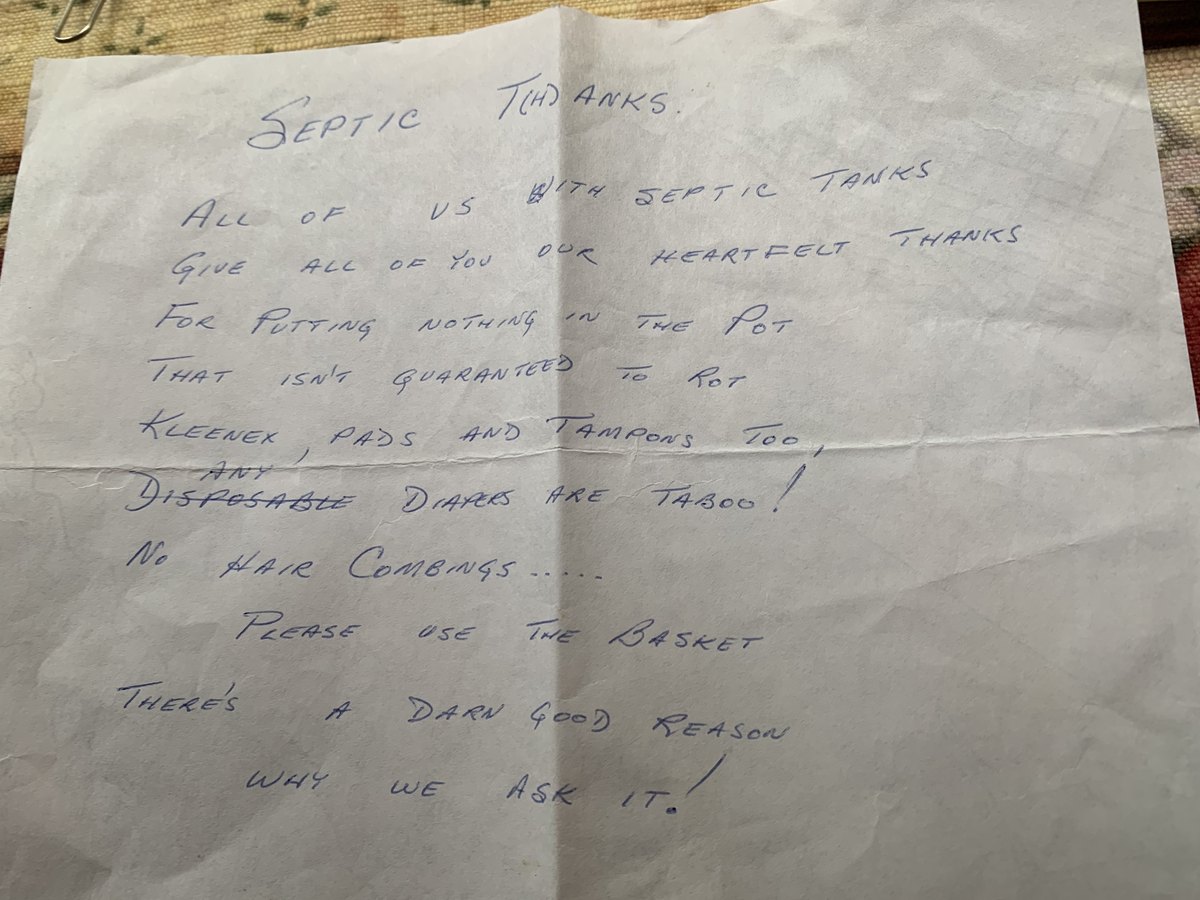 SEPTIC T(H)ANKS.
ALL OF US WITH SEPTIC TANKS
GIVE ALL OF YOU OUR HEARTFELT THANKS
FOR PUTTING NOTHING IN THE POT
THAT ISN'T GUARANTEED TO ROT
KLEENEX, PADS AND TAMPONS TOO,
ANY
DISPOSABLE DIAPERS ARE TABOO!
NO HAIR COMBINGS.....
PLEASE USE THE BASKET
THERE'S A DARN GOOD REASON
WHY WE ASK IT!